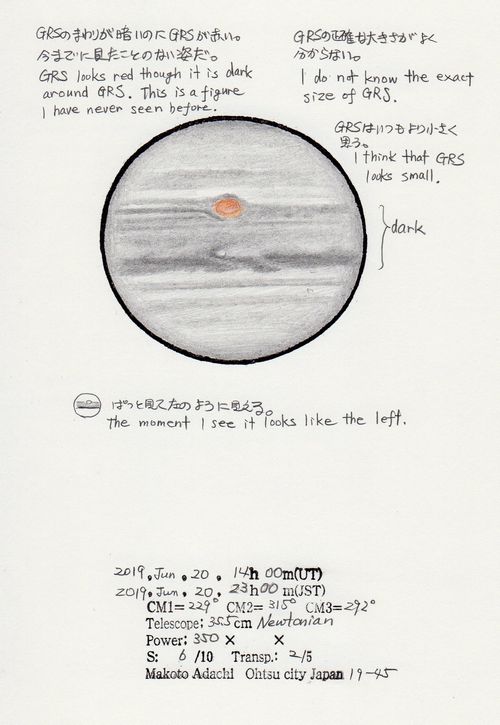 GRSのまわりが暗いのにGRSが赤い。
今までに見たことのない姿だ。
GRS looks red though it is dark
around GRS. This is a figure
I have never seen before.
GRSの正確な大きさがよく
分からない。
I do not know the exact
size of GRS.
GRSはいつもより小さく
思う。
I think that GRS
looks small.
dark
ぱっと見て左のように見える。
the moment I see it looks like the left.
2019, Jun, 20, 14h 00m(UT)
2019, Jun, 20, 23h00 m(JST)
CM1=229° CM2=315° CM3=292°
Telescope: 355cm Newtonian
Power: 350 × ×
S: 6 /10 Transp.: 2/5
Makoto Adachi Ohtsu city Japan 19-45